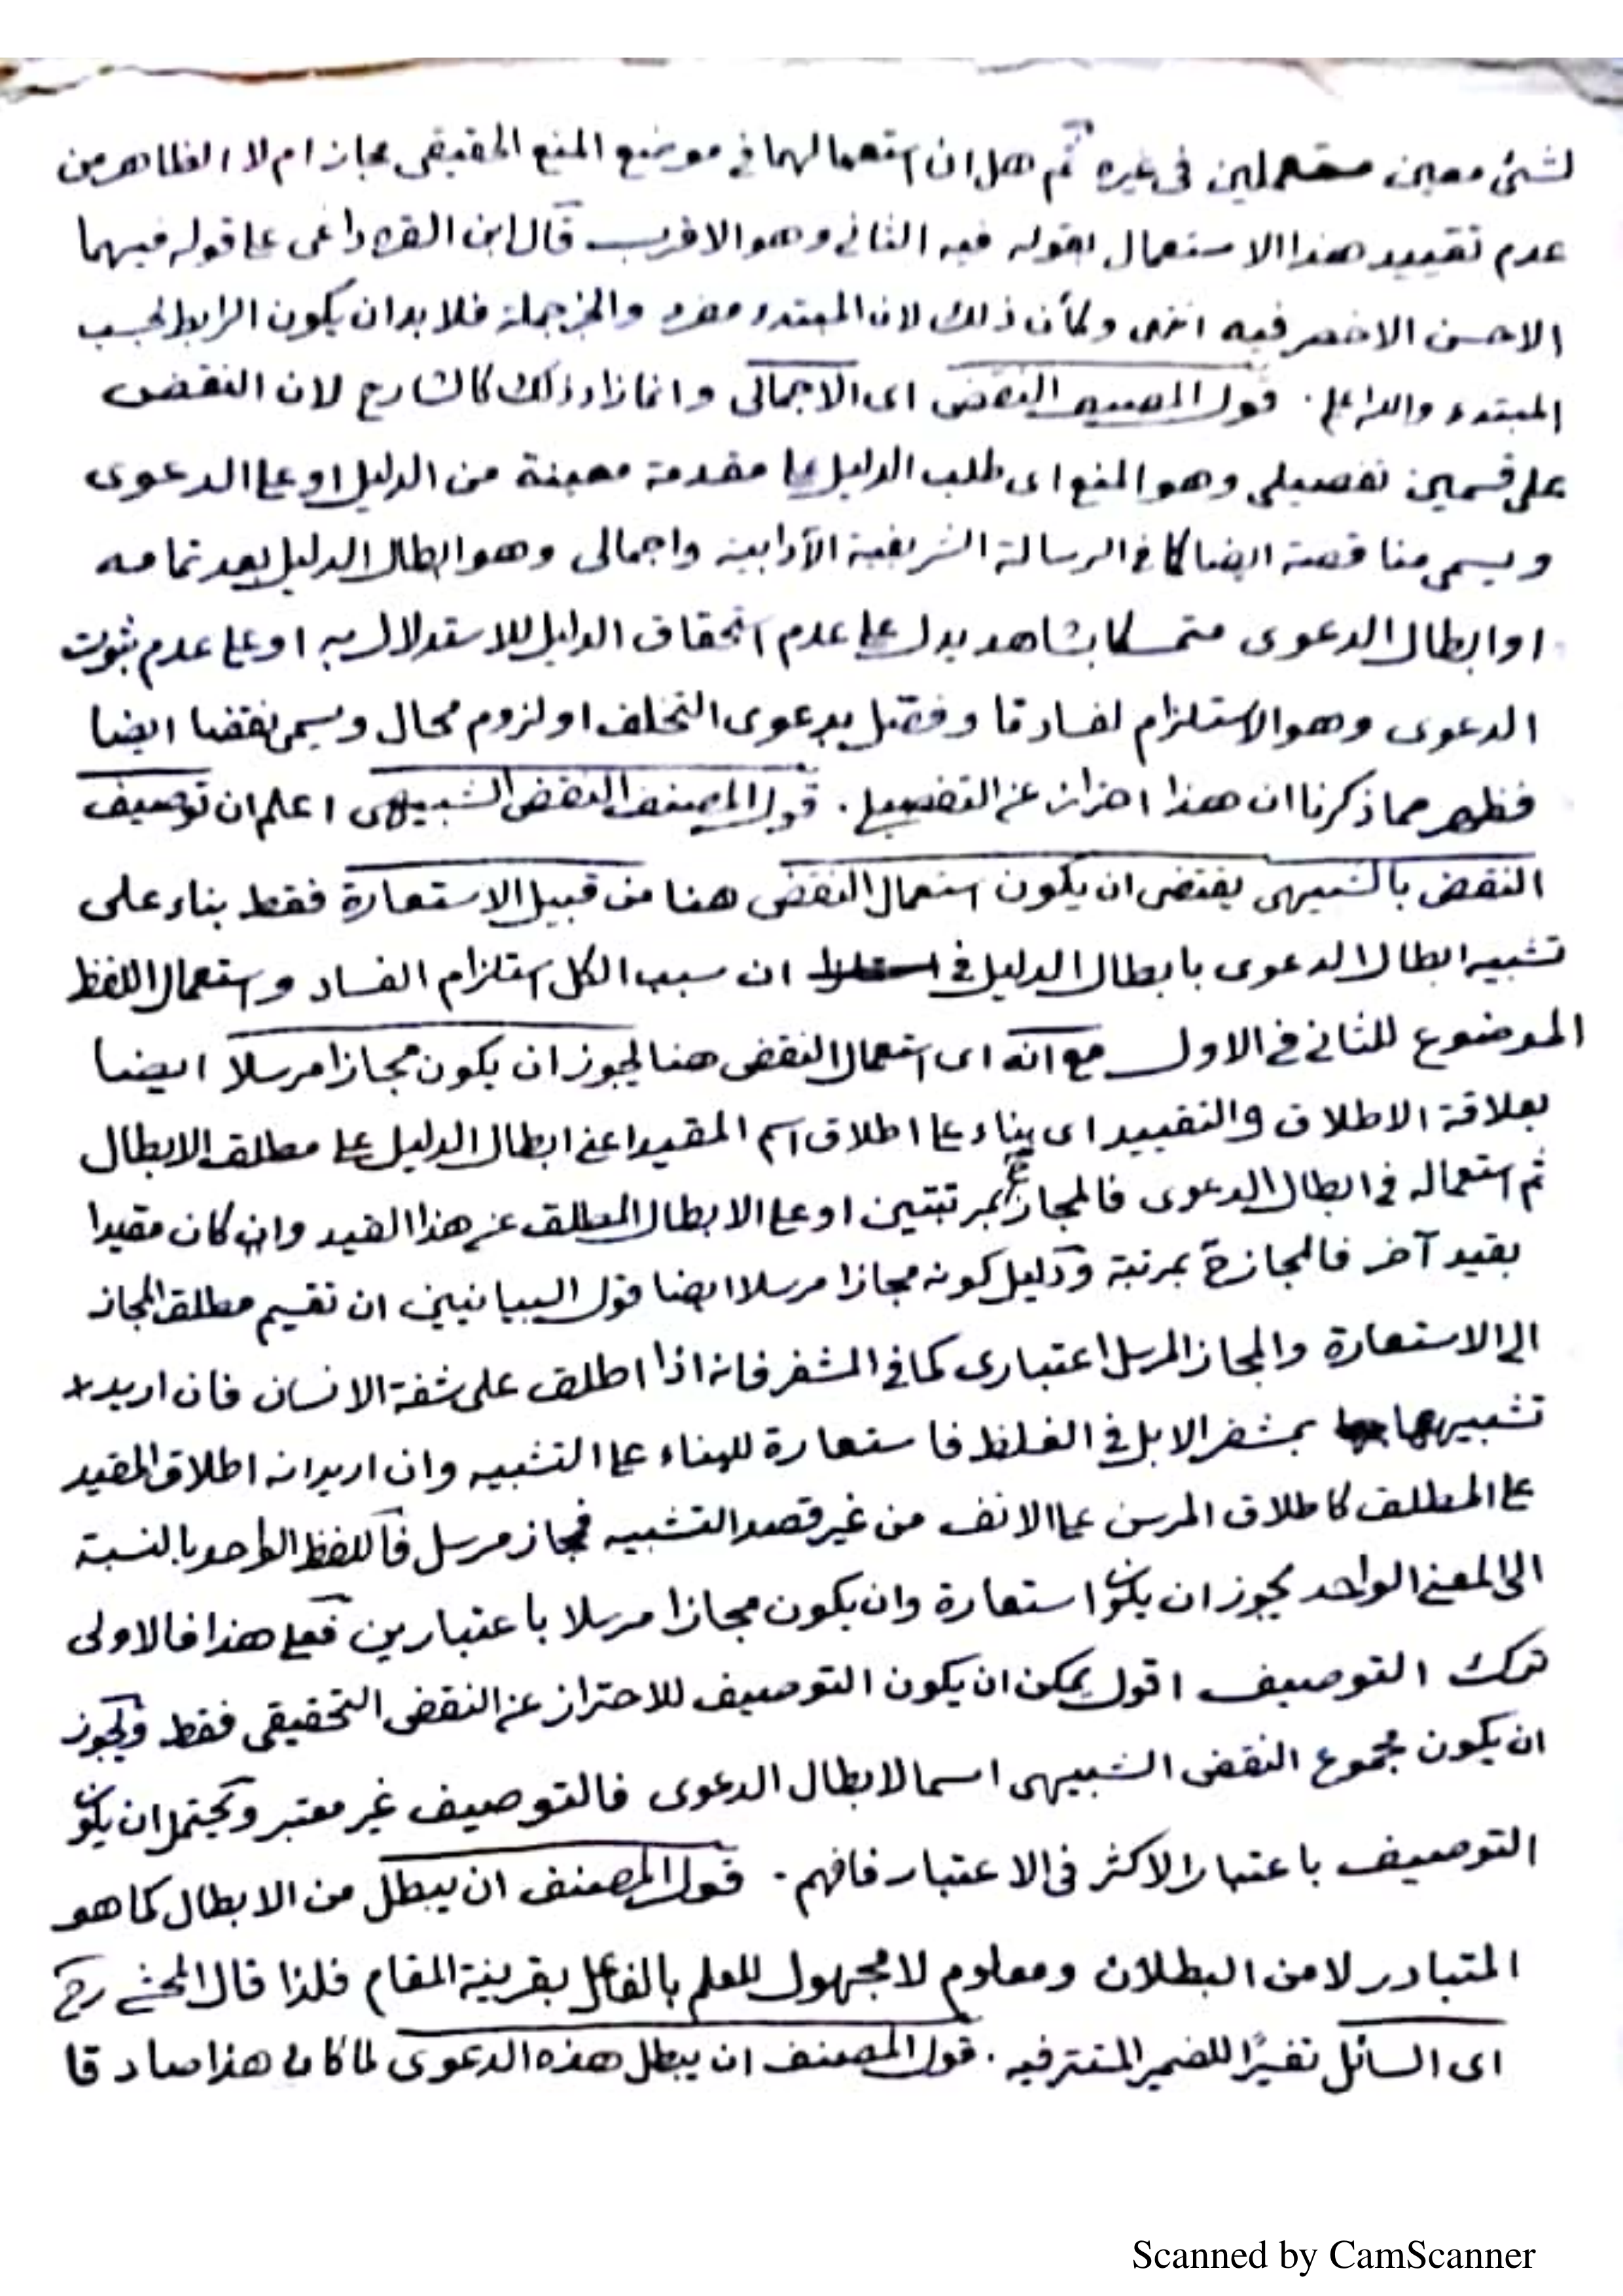 لشئ معين مستعملين فى غيره ثم هل ان استعمالهما فى موضع المنع الحقيقى مجاز ام لا الظاهر من
عدم تقييد هذا الاستعمال بقوله فيه الثانى وهو الاقرب قال ابن القره داغى على قوله فيهما
الاحسن الاخصر فيه انتهى وكأن ذلك لان المبتدء مفرد والخبر جملة فلا بد ان يكون الرابط بحسب
المبتدء والله اعلم. قول المصنف النقض اى الاجمالى وانما زاد ذلك كالشارح لان النقض
على قسمين تفصيلى وهو المنع اى طلب الدليل على مقدمة معينة من الدليل او على الدعوى
ويسمى مناقصة ايضا كما فى الرسالة الشريفية الآدابية واجمالى وهو ابطال الدليل بعد تمامه
او ابطال الدعوى متمسكا بشاهد يدل على عدم استحقاق الدليل للاستدلال به او على عدم ثبوت
الدعوى وهو الاستلزام لفساد ما وفصل بدعوى التخلف او لزوم محال ويسمى نقضا ايضا
فظهر مما ذكرنا ان هذا احتراز عن التفصيلى. قول المصنف النقض الشبيهى اعلم ان توصيف
النقض بالشبيهى يقتضى ان يكون استعمال النقض هنا من قبيل الاستعارة فقط بناء على
تشبيه ابطال الدعوى بابطال الدليل فى ان سبب الكل استلزام الفساد واستعمال اللفظ
الموضوع للثانى فى الاول مع انه اى استعمال النقض هنا يجوز ان يكون مجازا مرسلا ايضا
بعلاقة الاطلاق والتقييد اى بناء على اطلاق اسم المقيد اعنى ابطال الدليل على مطلق الابطال
ثم استعماله فى ابطال الدعوى فالمجاز بمرتبتين او على الابطال المطلق عن هذا القيد وان كان مقيدا
بقيد آخر فالمجازة بمرتبة ودليل كونه مجازا مرسلا ايضا قول البيانيين ان تقسيم مطلق المجاز
الى الاستعارة والمجاز المرسل اعتبارى كما فى المشفر فانه اذا اطلق على شفة الانسان فان اريد
تشبيهها بمشفر الابل فى الغلظ فاستعارة للبناء على التشبيه وان اريد انه اطلاق المقيد
على المطلق كاطلاق المرسن على الانف من غير قصد التشبيه فمجاز مرسل فاللفظ الواحد بالنسبة
الى المعنى الواحد يجوز ان يكون استعارة وان يكون مجازا مرسلا باعتبارين فعلى هذا فالاولى
ترك التوصيف اقول يمكن ان يكون التوصيف للاحتراز عن النقض التحقيقى فقط ويجوز
ان يكون مجموع النقض الشبيهى اسما لابطال الدعوى فالتوصيف غير معتبر ويحتمل ان يكون
التوصيف باعتبار الاكثر فى الاعتبار فافهم. قول المصنف ان يبطل من الابطال كما هو
المتبادر لا من البطلان ومعلوم لا مجهول للعلم بالفاعل بقرينة المقام فلذا قال المحشى رح
اى السائل تفسيرًا للضمير المستتر فيه. قول المصنف ان يبطل هذه الدعوى لما كان هذا صادقا
Scanned by CamScanner